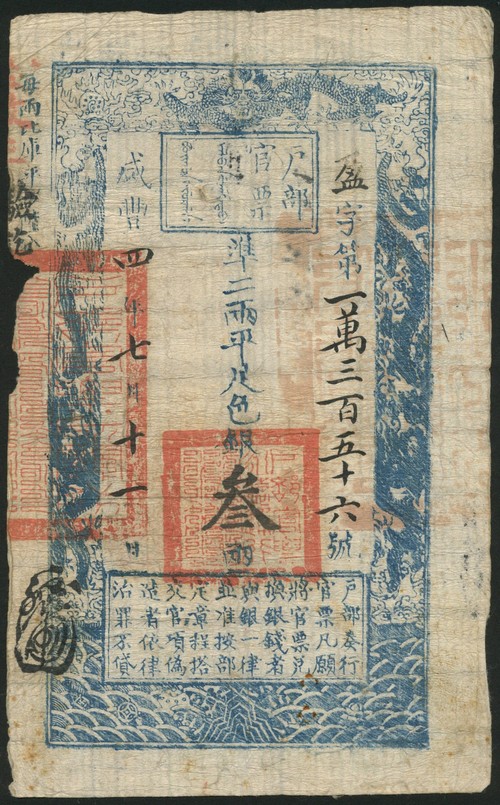 盈字第一萬三百五十六號
戶部
官票
準二兩平足色銀叁兩
咸豐四年七月十一日
每兩比庫平
戶部奏行
官票凡願
將官票兌
換銀錢者
與銀一律
並准按部
定章程搭
交官項偽
造者依律
治罪不貸